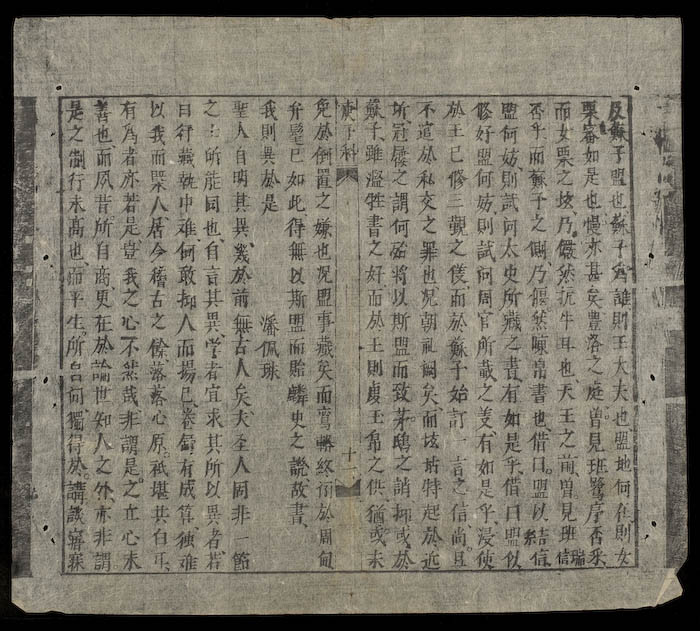 及蘇子盟也蘇子爲誰則王大夫也盟地何在則女
栗審如是也慢亦甚矣豐洛之庭曽見班鷺序否乎
而女栗之坎乃儼然執牛耳也天王之前曽見班瑞信
否乎而蘇子之側乃儼然陳帛書也借曰盟以結信
盟何妨則試問太史所藏之書有如是乎借曰盟以
修好盟何妨則試問周官所載之文有如是乎浸使
於王已修三覲之後而於蘇子始訂一言之信尚且
不逭於私交之罪也况朝礼闕矣而坎坫特起於近
郊冠履之謂何殆將以斯盟而致茅鴟之誚抑或於
蘇子雖濫牲書之好而於王則虔玉帛之供猶或未
庚子科
十二
免於倒置之嫌也况盟事蕆矣而鸞輅終於周甸
弁髦已如此得無以斯盟而貽麟史之譏故書
我則異於是
潘佩珠
聖人自明其異幾於前無古人矣夫聖人固非一節
之士所能同也自言其異學者宜求其所以異者若
曰行藏執中雖何敢抑人而揚己卷舒有成算独难
以我而槩人居今稽古之餘落落心原祇堪共白耳
有爲者亦若是豈我之心不然哉非謂是之立心未
善也而夙昔所自商更在於論世知人之外亦非謂
是之制行未高也而平生所自問獨得於講談寤寐